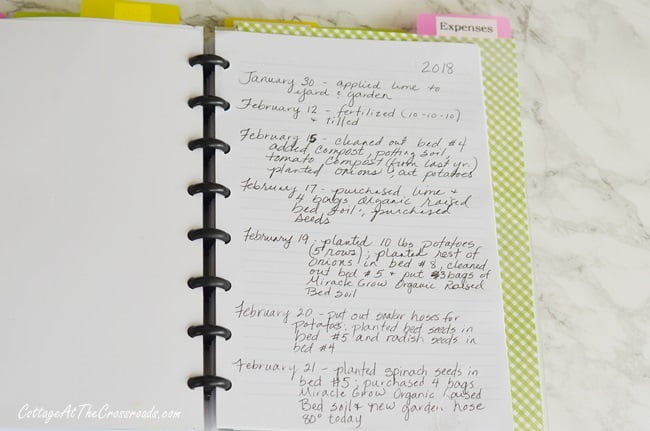 Expenses
2018
January 30 - applied lime to
yard & garden
February 12 - fertilized (10-10-10)
& tilled
February 15 - cleaned out bed #4
added compost, potting soil,
tomato compost (from last yr.)
planted onions; cut potatoes
February 17 - purchased lime &
4 bags organic raised
bed soil; purchased
seeds
February 19 - planted 10 lbs potatoes
(5 rows); planted rest of
onions in bed #8, cleaned
out bed #5 & put 3 bags of
Miracle Grow Organic Raised
Bed Soil
February 20 - put out soaker hoses for
potatoes; planted beet seeds in
bed #5 and radish seeds in
bed #4
February 21 - planted spinach seeds in
bed #5; purchased 4 bags
Miracle Grow Organic Raised
Bed Soil & new garden hose
80° today
CottageAtTheCrossroads.com